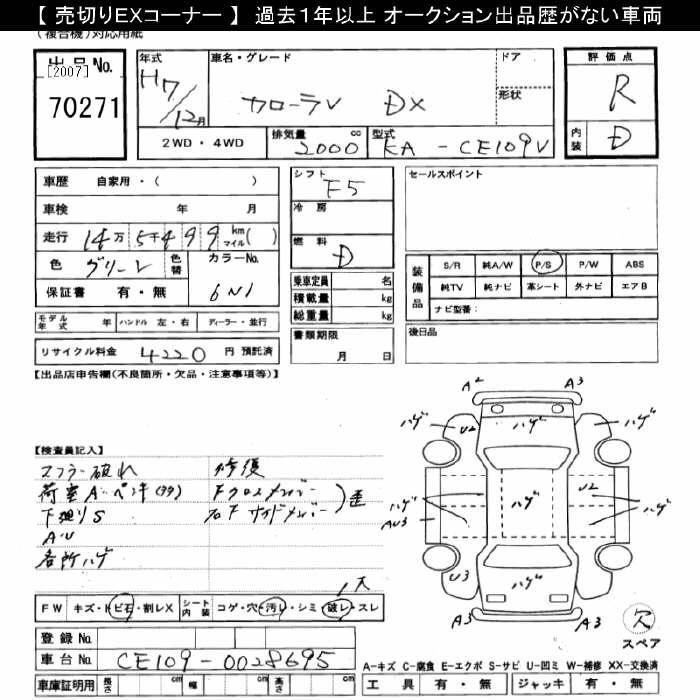 【 売切りEXコーナー 】 過去1年以上 オークション出品歴がない車両
(複合機)対応用紙
出品No.
[2007]
70271
年式
H7/12月
車名・グレード
カローラV DX
ドア
形状
評価点
R
内装
D
2WD・4WD
排気量 cc
2000
型式
KA - CE109V
車歴 自家用・( )
車検 年 月
走行 14万5千499 km マイル( )
色 グリーン 色替 カラーNo. 6N1
保証書 有・無
モデル年式 年 ハンドル 左・右 ディーラー・並行
リサイクル料金 4220 円 預託済
シフト
F5
冷房
燃料
D
乗車定員 名
積載量 kg
総重量 kg
書類期限
月 日
セールスポイント
装備品
S/R 純A/W P/S P/W ABS
純TV 純ナビ 革シート 外ナビ エアB
ナビ型番:
後日品
【出品店申告欄(不良箇所・欠品・注意事項等)】
【検査員記入】
マフラー破れ
荷室A・ペンキ
下廻りS
AU
各所ハゲ
修復
Fクロスメンバー
右Fサイドメンバー
歪
A2 A3
ハゲ U2 ハゲ ハゲ
ハゲ AU3 ハゲ U2 ハゲ
U3 ハゲ
A3 A3
欠
スペア
FW キズ・トビ石・割レX シート内装 コゲ・穴・汚レ・シミ・破レ・スレ
大
登録No.
車台No. CE109-0028695
車庫証明用 長さ cm 幅 cm 高さ cm
A-キズ C-腐食 E-エクボ S-サビ U-凹ミ W-補修 XX-交換済
工具 有・無 ジャッキ 有・無